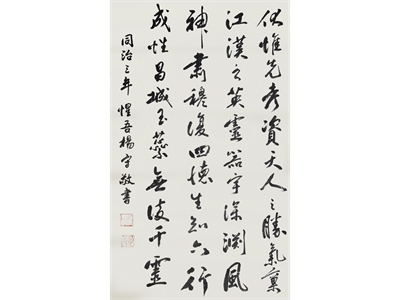 伏惟先考資天人之勝氣稟
江漢之英靈器宇深淵風
神肅穆復四德生知六行
成性昌城玉蘂無復千靈
同治三年 惺吾楊守敬書